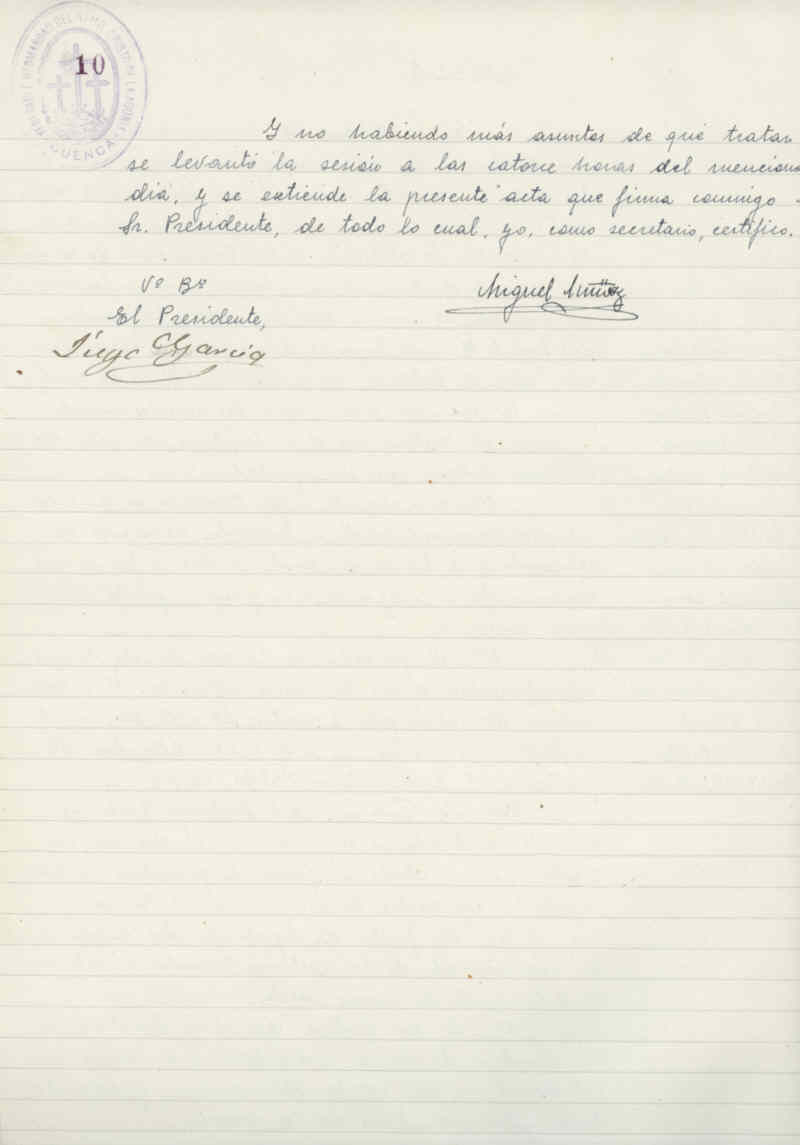 10
HERMANDAD DEL
CUENCA
Y no habiendo más asuntos de que tratar
se levantó la sesión a las catorce horas del menciona
día, y se extiende la presente acta que firma conmigo
Sr. Presidente, de todo lo cual, yo, como secretario, certifico.
Vº Bº
El Presidente,
Miguel Muñoz
Diego García